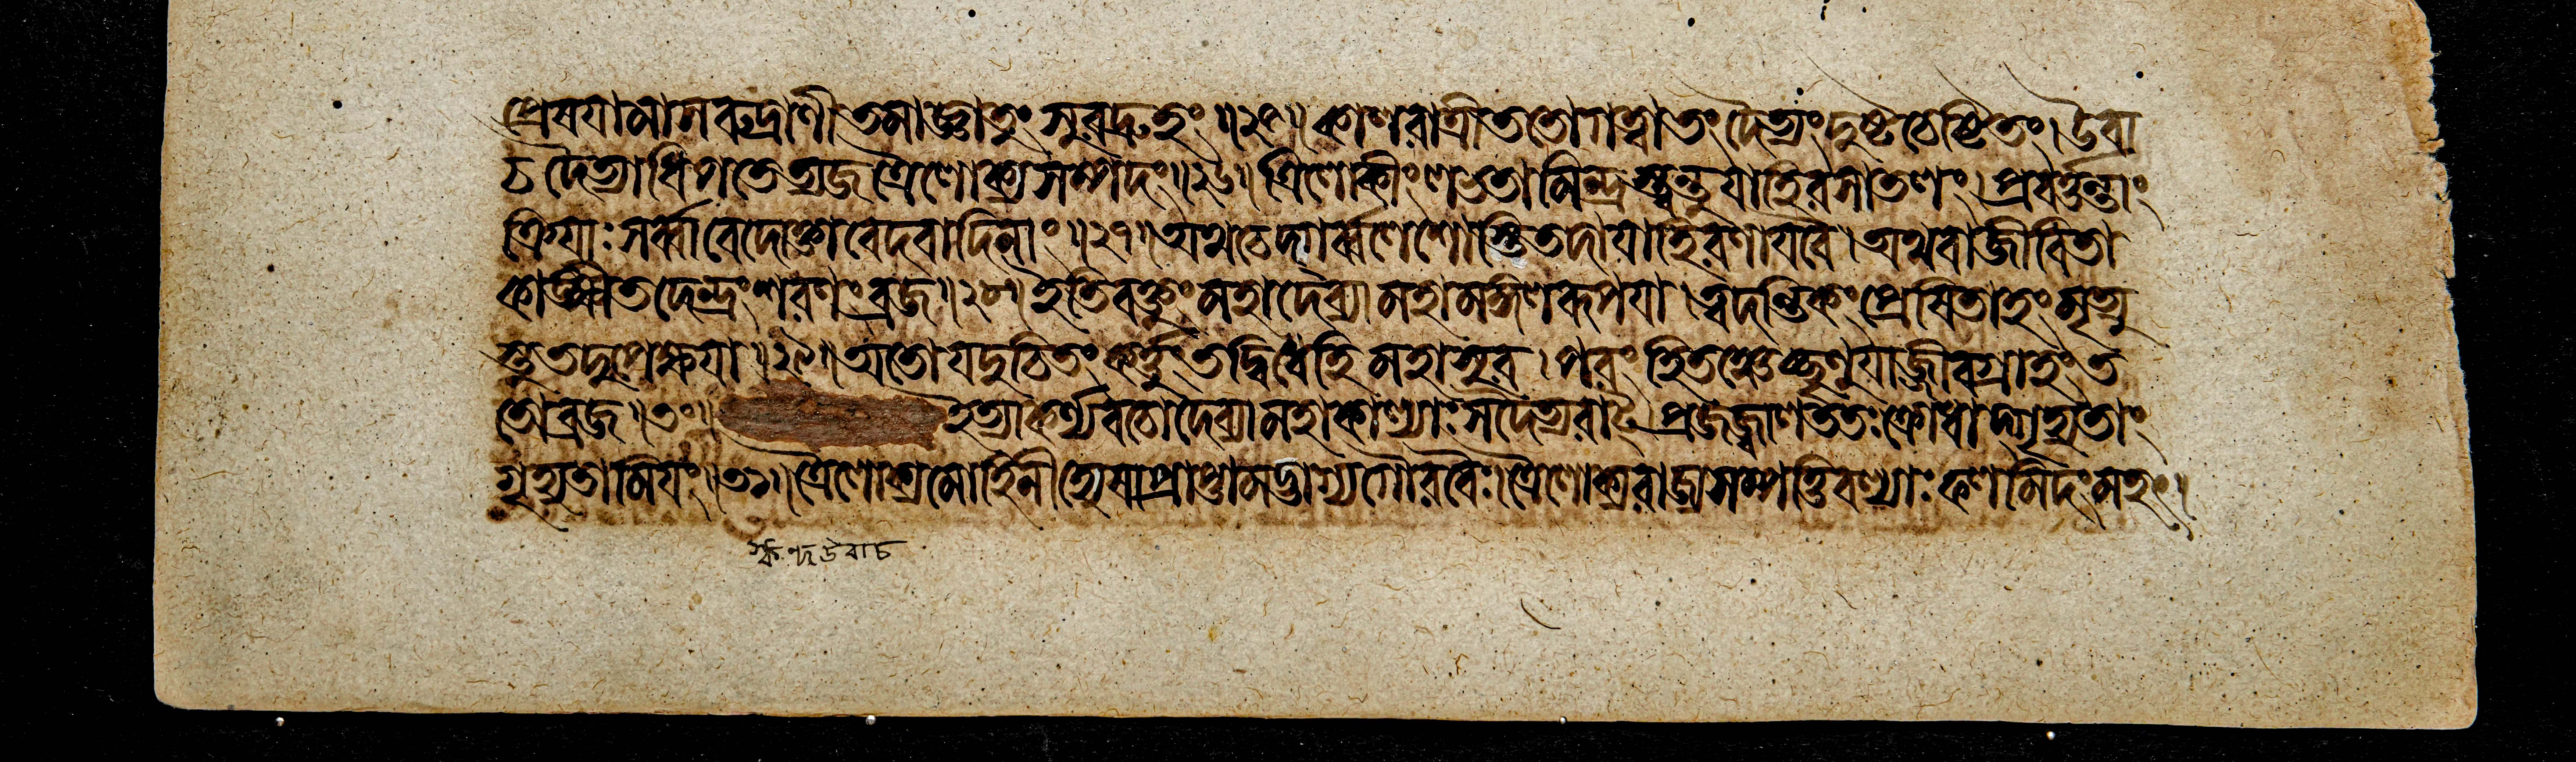 প্রেষযামাস রুদ্রাণী তমাহ্বাতুং সুরদ্রুহং॥২৫॥ কালরাত্রী ততো গত্বা তং দৈত্যং দুষ্টচেষ্টিতং। উবা
চ দৈত্যাধিপতে ত্যজ ত্রৈলোক্যসম্পদং॥২৬॥ ত্রিলোকীং লভতামিন্দ্রস্ত্বন্তু যাহি রসাতলং। প্রবর্ত্তন্তাং
ক্রিযাঃ সর্ব্বা বেদোক্তা বেদবাদিনাং॥২৭॥ অথ চেদ্গর্ব্বলেশোস্তি তদা যাহি রণায বৈ। অথবা জীবিতা
কাঙ্ক্ষী তদেন্দ্রং শরণং ব্রজ॥২৮॥ ইতি বক্তুং মহাদেব্যা মহামঙ্গলরূপযা। ত্বদন্তিকং প্রেষিতাহং মৃত্যু
স্তে তদুপেক্ষযা॥২৯॥ অতো যদুচিতং কর্ত্তুং তদ্বিধেহি মহাসুর। পরং হিতঞ্চেচ্ছৃণুযা জীবগ্রাহং ত
তো ব্রজ॥৩০॥ ইত্যাকর্ণ্য বচো দেব্যা মহাকাল্যাঃ স দৈত্যরাট্ প্রজজ্বাল ততঃ ক্রোধাদ্গৃহ্যতাং
গৃহ্যতামিযং॥৩১॥ ত্রৈলোক্যমোহিনী হ্যেষা প্রাপ্তা মদ্ভাগ্যগৌরবৈঃ। ত্রৈলোক্যরাজ্যসম্পত্তিবল্ল্যাঃ ফলমিদং মহৎ।
স্কন্দ উবাচ